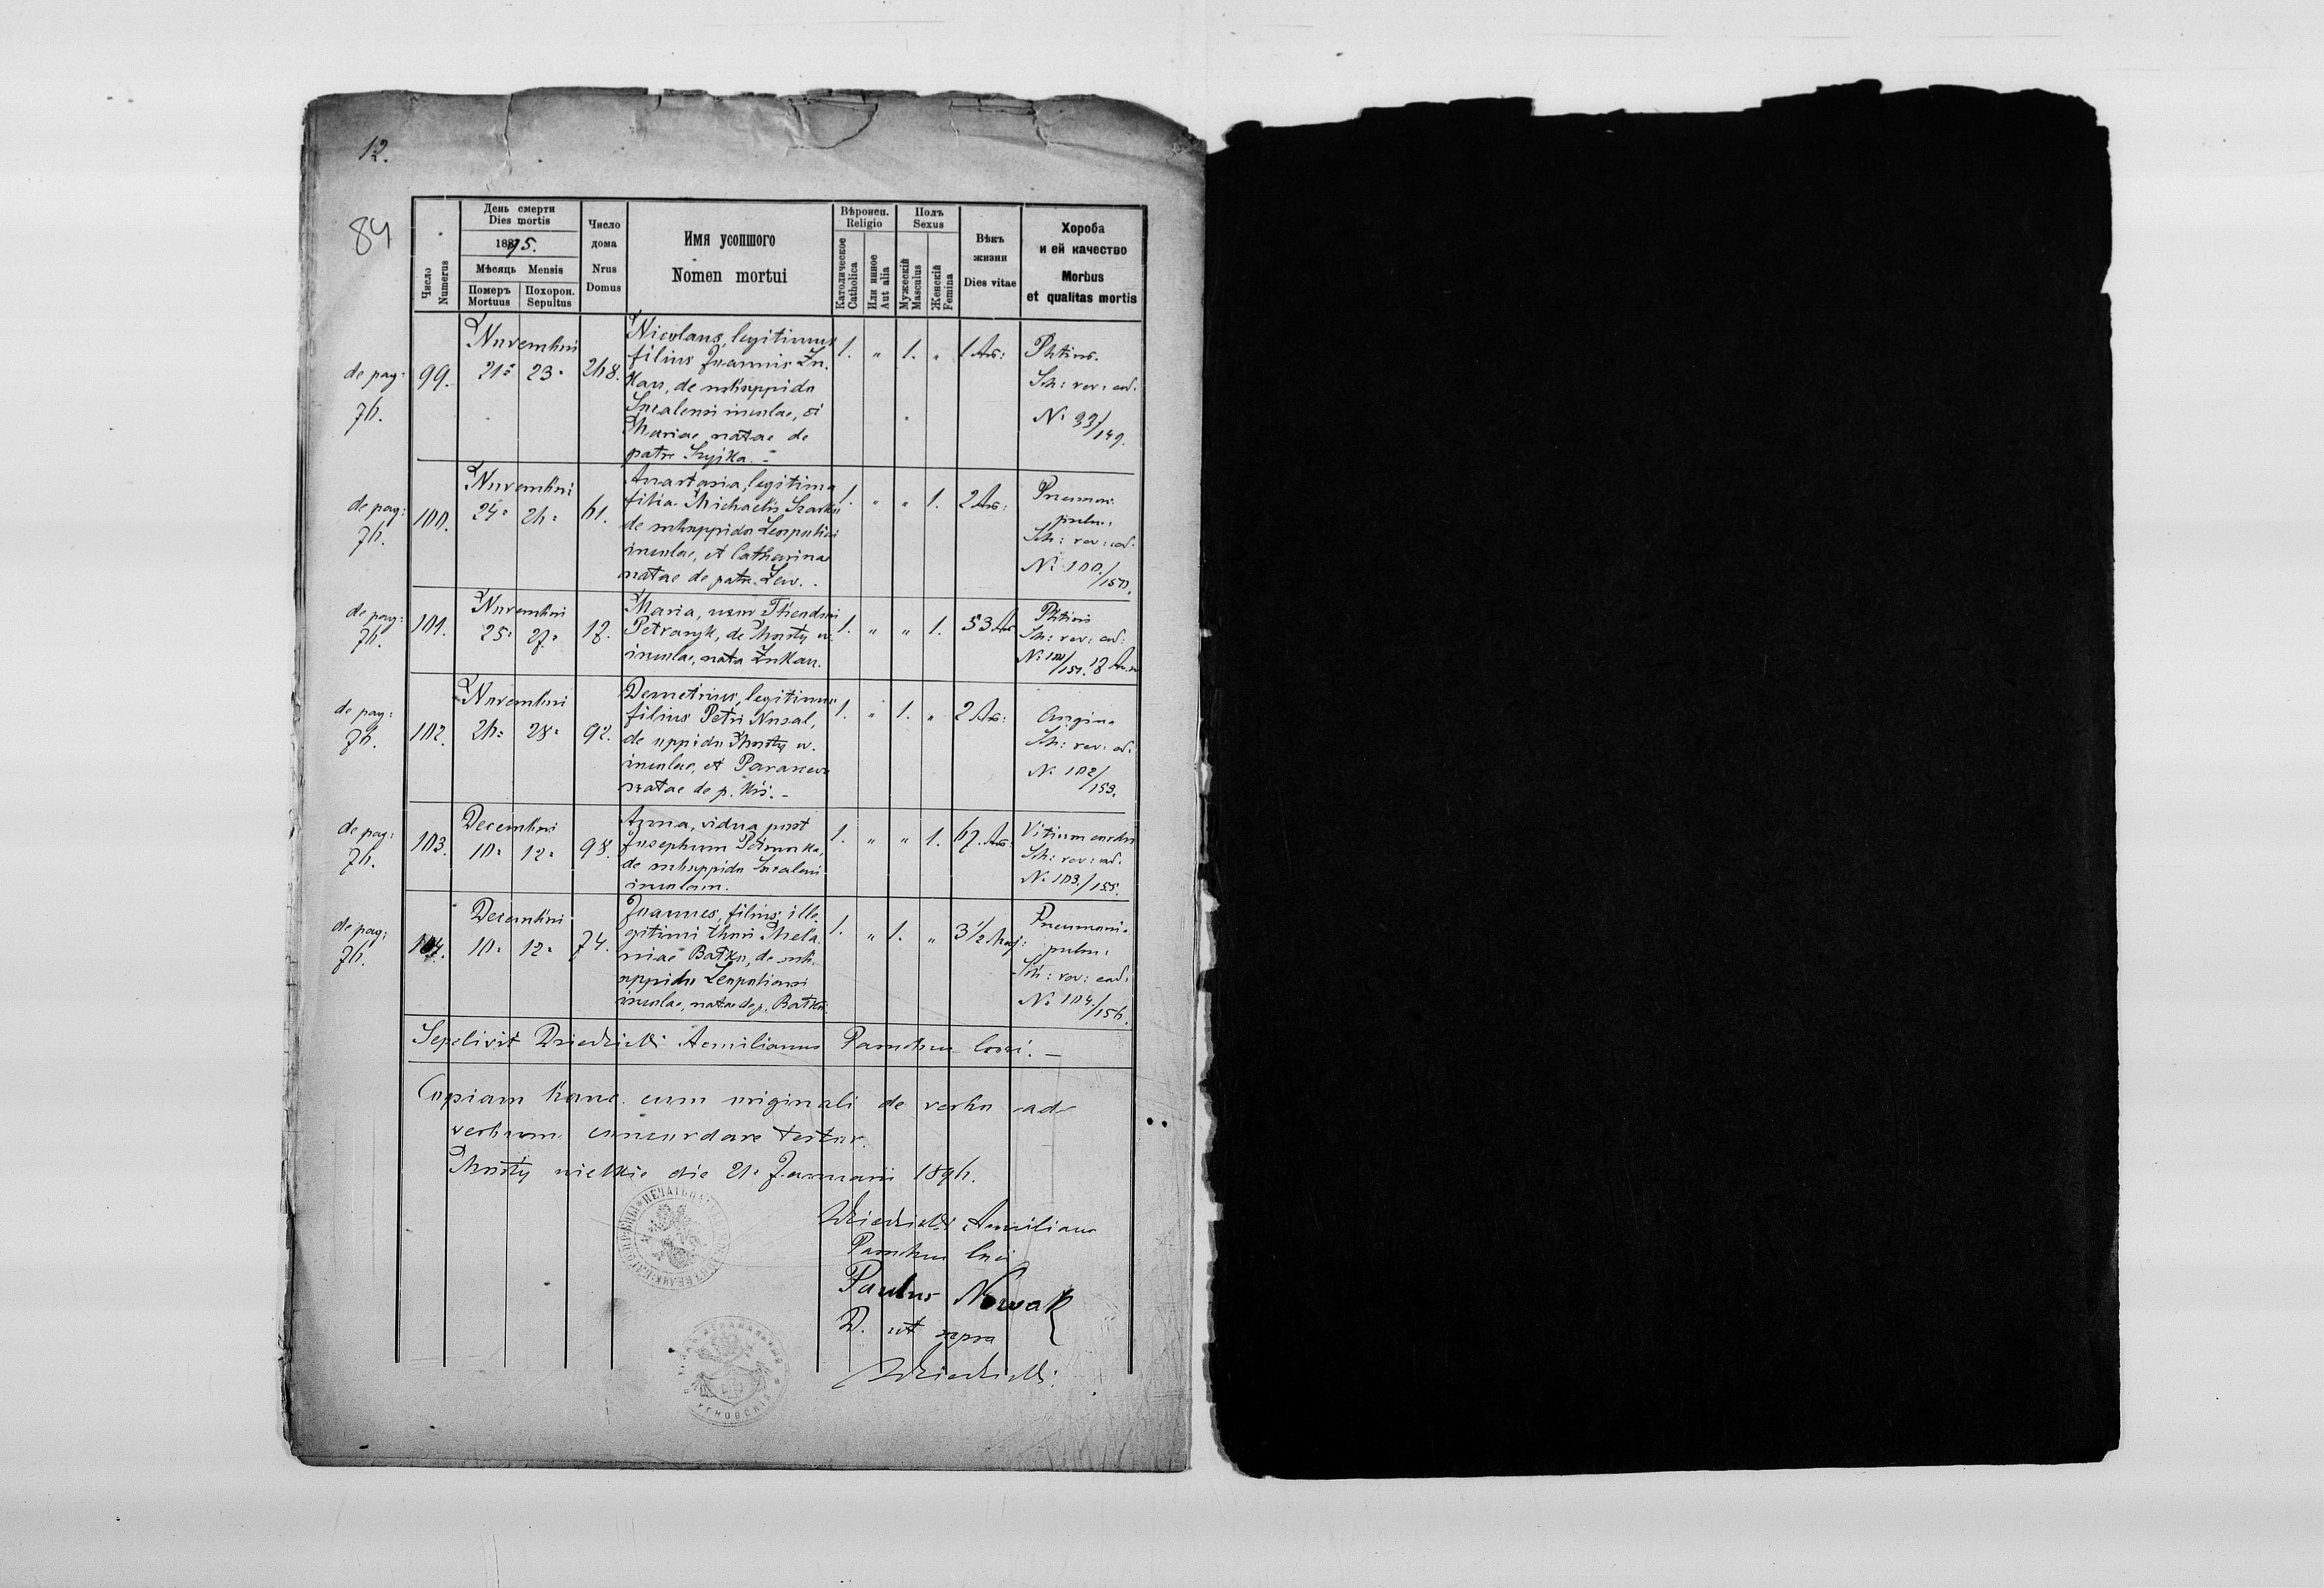 12.
84
Число
Numerus
День смерти
Dies mortis
1895.
Мѣсяць Mensis
Померъ
Mortuus
Похорон.
Sepultus
Число
дома
Nrus
Domus
Имя усопшого
Nomen mortui
Вѣроисп.
Religio
Католическое
Catholica
Или инное
Aut alia
Полъ
Sexus
Мужескій
Masculus
Женскій
Femina
Вѣкъ
жизни
Dies vitae
Хороба
и ей качество
Morbus
et qualitas mortis
de pag:
76.
99.
Novembri
21. 23.
268.
Nicolaus, legitimus
filius Joannis Zu-
kau, de suboppido
Socalensi incolae, et
Mariae natae de
patre Szyjka. -
1. " 1. "
1 An:
Phtisis.
Sch: rev: cad:
N. 99/149.
de pag:
76.
100.
Novembri
24. 26.
61.
Anastasia, legitima
filia Michaelis
de suboppido Leopoliensi
incolae, et Catharinae
natae de patre Lew. -
1. " " 1.
2 An:
Pneumon:
pulm:
Sch: rev: cad:
N. 100./150.
de pag:
76.
101.
Novembri
25. 27.
17.
Maria, uxor Theodori
Petraszyk, de Mosty w.
incolae, nata Zukau.
1. " " 1.
53 An
Phtisis
Sch: rev: cad:
N. 101/151.
de pag:
76.
102.
Novembri
26. 28.
92.
Demetrius, legitimus
filius Petri Nosal,
de oppido Mosty w.
incolae, et Parascevae
natae de p. Kiś. -
1. " 1. "
2 An:
Angina
Sch: rev: cad:
N. 102/153.
de pag:
76.
103.
Decembri
10. 12.
98.
Anna, vidua post
Josephum
de suboppido Socalensi
incolam.
1. " " 1.
67. An:
Vitium cordis
Sch: rev: cad:
N. 103./155.
de pag:
76.
104.
Decembri
10. 12.
74.
Joannes, filius ille-
gitimi thori Mela-
niae Batko, de sub-
oppido Leopoliensi
incolae, natae de p. Batko.
1. " 1. "
3 1/2
Pneumonia
pulm:
Sch: rev: cad:
N. 104./156.
Sepelivit Dziedzicki Aemilianus Parochus loci. -
Copiam hanc cum originali de verbo ad
verbum concordare testor.
Mosty wielkie die 21. Januarii 1896.
Dziedzicki Aemilianus
Parochus loci
Paulus Nowak
D. ut supra
Dziedzicki.